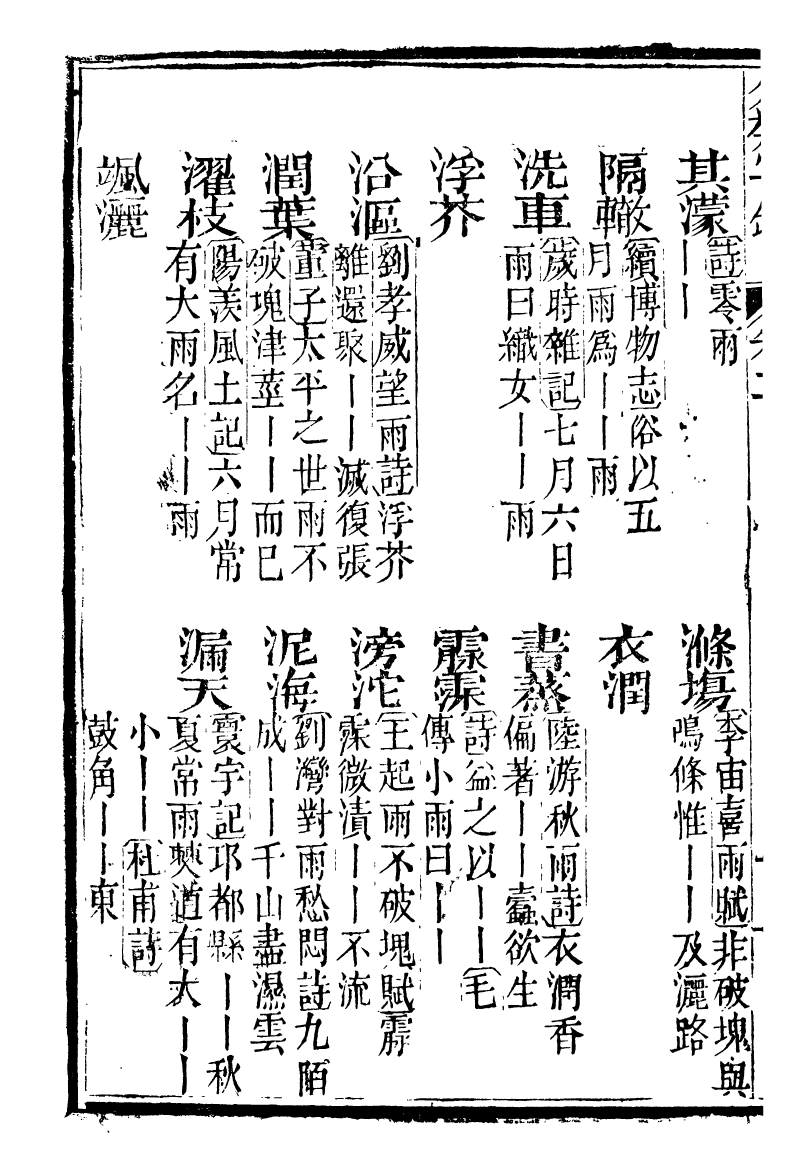 其濛
詩零雨
｜｜
隔轍
續博物志俗以五
月雨爲｜｜雨
洗車
歲時雜記七月六日
雨曰織女｜｜雨
浮芥
沿漚
劉孝威望雨詩浮芥
離還聚｜｜滅復張
潤葉
董子太平之世雨不
破塊津莖｜｜而已
濯枝
陽羨風土記六月常
有大雨名｜｜雨
颯灑
滌場
李宙喜雨賦非破塊與
鳴條惟｜｜及灑路
衣潤
書蒸
陸游秋雨詩衣潤香
偏著｜｜蠹欲生
霢霂
詩益之以｜｜毛
傳小雨曰｜｜
滂沱
王起雨不破塊賦霢
霂微漬｜｜不流
泥海
劉灣對雨愁悶詩九陌
成｜｜千山盡濕雲
漏天
寰宇記邛都縣｜｜秋
夏常雨僰道有大｜｜
小｜｜杜甫詩
鼓角｜｜東